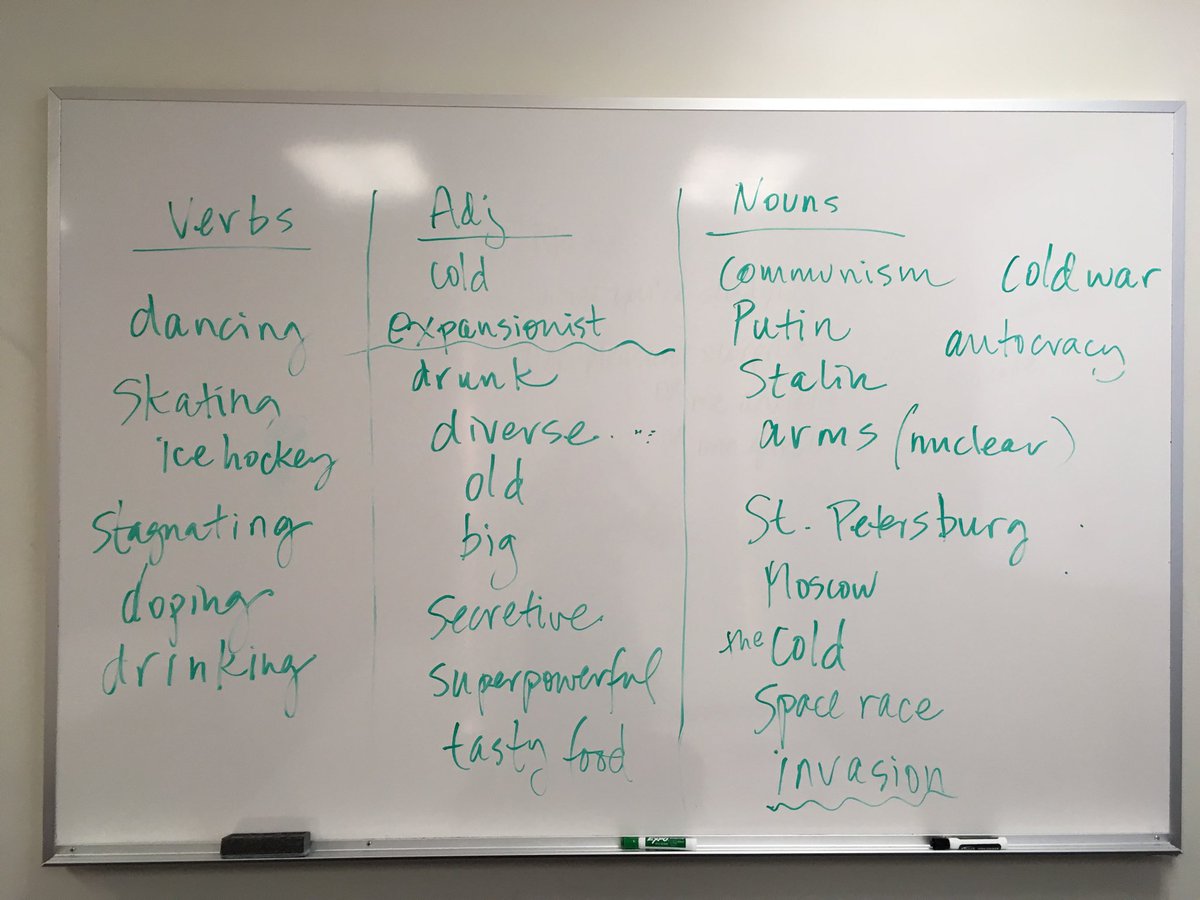 Verbs
dancing
Skating
ice hockey
Stagnating
doping
drinking
Adj
cold
expansionist
drunk
diverse...
old
big
Secretive
superpowerful
tasty food
Nouns
Communism
Putin
Stalin
arms (nuclear)
St. Petersburg
Moscow
the Cold
Space race
invasion
Cold war
autocracy
EXPO